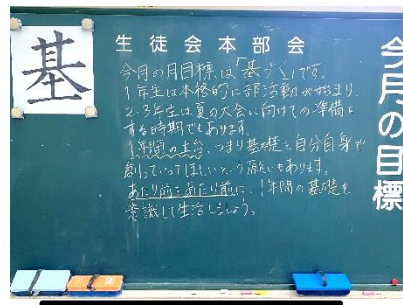 基
生徒会本部会
今月の目標
今月の月目標は「基づく」です。
1年生は本格的に部活動が始まり、
2・3年生は夏の大会に向けての準備を
する時期でもあります。
1年間の土台、つまり基礎を自分自身で
創っていってほしいという願いもあります。
あたり前をあたり前に、1年間の基礎を
意識して生活しましょう。